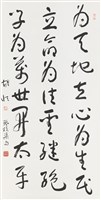 为天地立心为生民
立命为往圣继绝
学为万世开太平